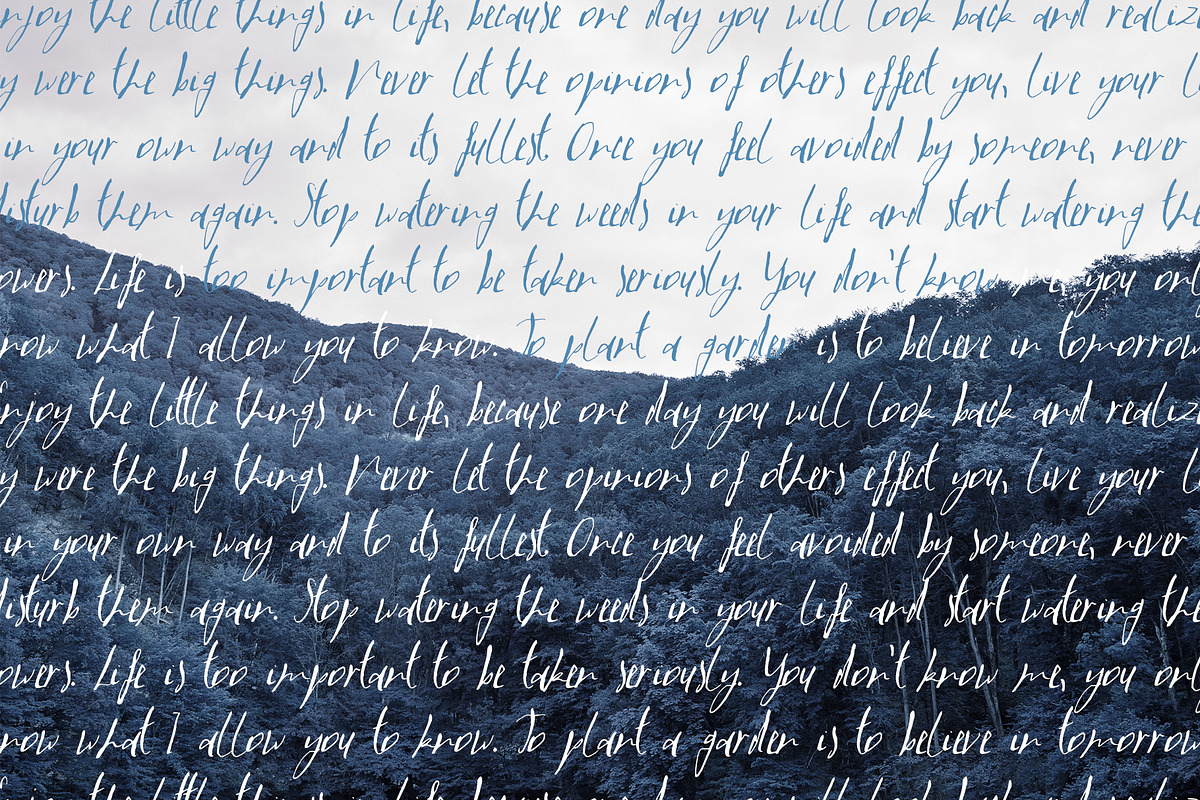 njoy the little things in life, because one day you will look back and realiz
y were the big things. Never let the opinions of others effect you, live your li
in your own way and to its fullest. Once you feel avoided by someone, never
disturb them again. Stop watering the weeds in your life and start watering the
owers. Life is too important to be taken seriously. You don't know me, you only
now what I allow you to know. To plant a garden is to believe in tomorrow
njoy the little things in life, because one day you will look back and realiz
y were the big things. Never let the opinions of others effect you, live your li
in your own way and to its fullest. Once you feel avoided by someone, never
disturb them again. Stop watering the weeds in your life and start watering the
owers. Life is too important to be taken seriously. You don't know me, you only
now what I allow you to know. To plant a garden is to believe in tomorrow
the little things in life, because one day you will look back and